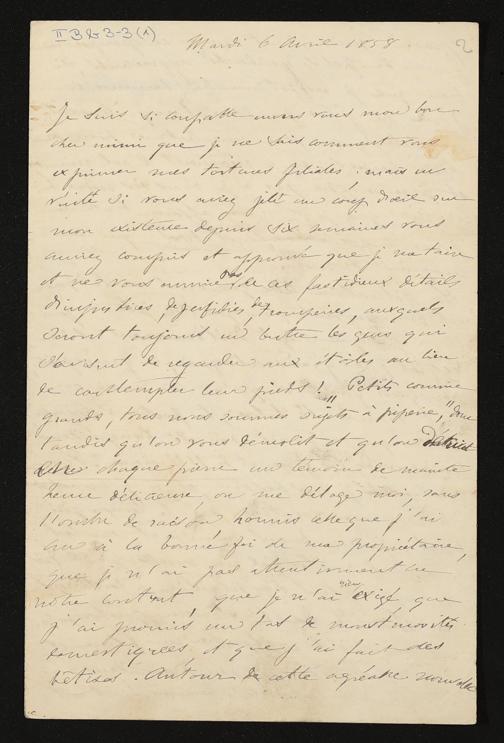 II B b 3-3 (1)
Mardi 6 Avril 1858
2
Je suis si coupable envers vous mon bon
cher que je ne sais comment vous
exprimer mes tortures filiales ! mais en
vérité si vous aviez jeté un coup d'œil sur
mon existence depuis six semaines vous
auriez compris et approuvé que je me taise
et ne vous ennuie pas de ces fastidieux détails
d'injustices, de perfidies, de tromperies, auxquels
seront toujours en butte les gens qui
s'avisent de regarder aux étoiles au lieu
de contempler leur pieds ! Petits comme
grands, tous nous sommes "sujets à piperie", donc
tandis qu'on vous démolit et qu'on détruit
chaque pierre un témoin de mainte
heure délicieuse, on me déloge moi, sans
l'ombre de raison hormis celle que j'ai
cru à la bonne foi de ma propriétaire,
que je n'ai pas attentivement lu
notre contrat, que je n'ai rien exigé que
j'ai promis un tas de monstruosités
domestiques et que j'ai fait des
bêtises. Autour de cette agréable nouvelle